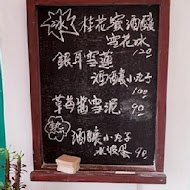 冰 桂花蜜酒釀
雪花冰
120
銀耳雪蓮
酒釀小丸子
100
草莓醬雪泥 90
熱 酒釀小丸子
水波蛋 90